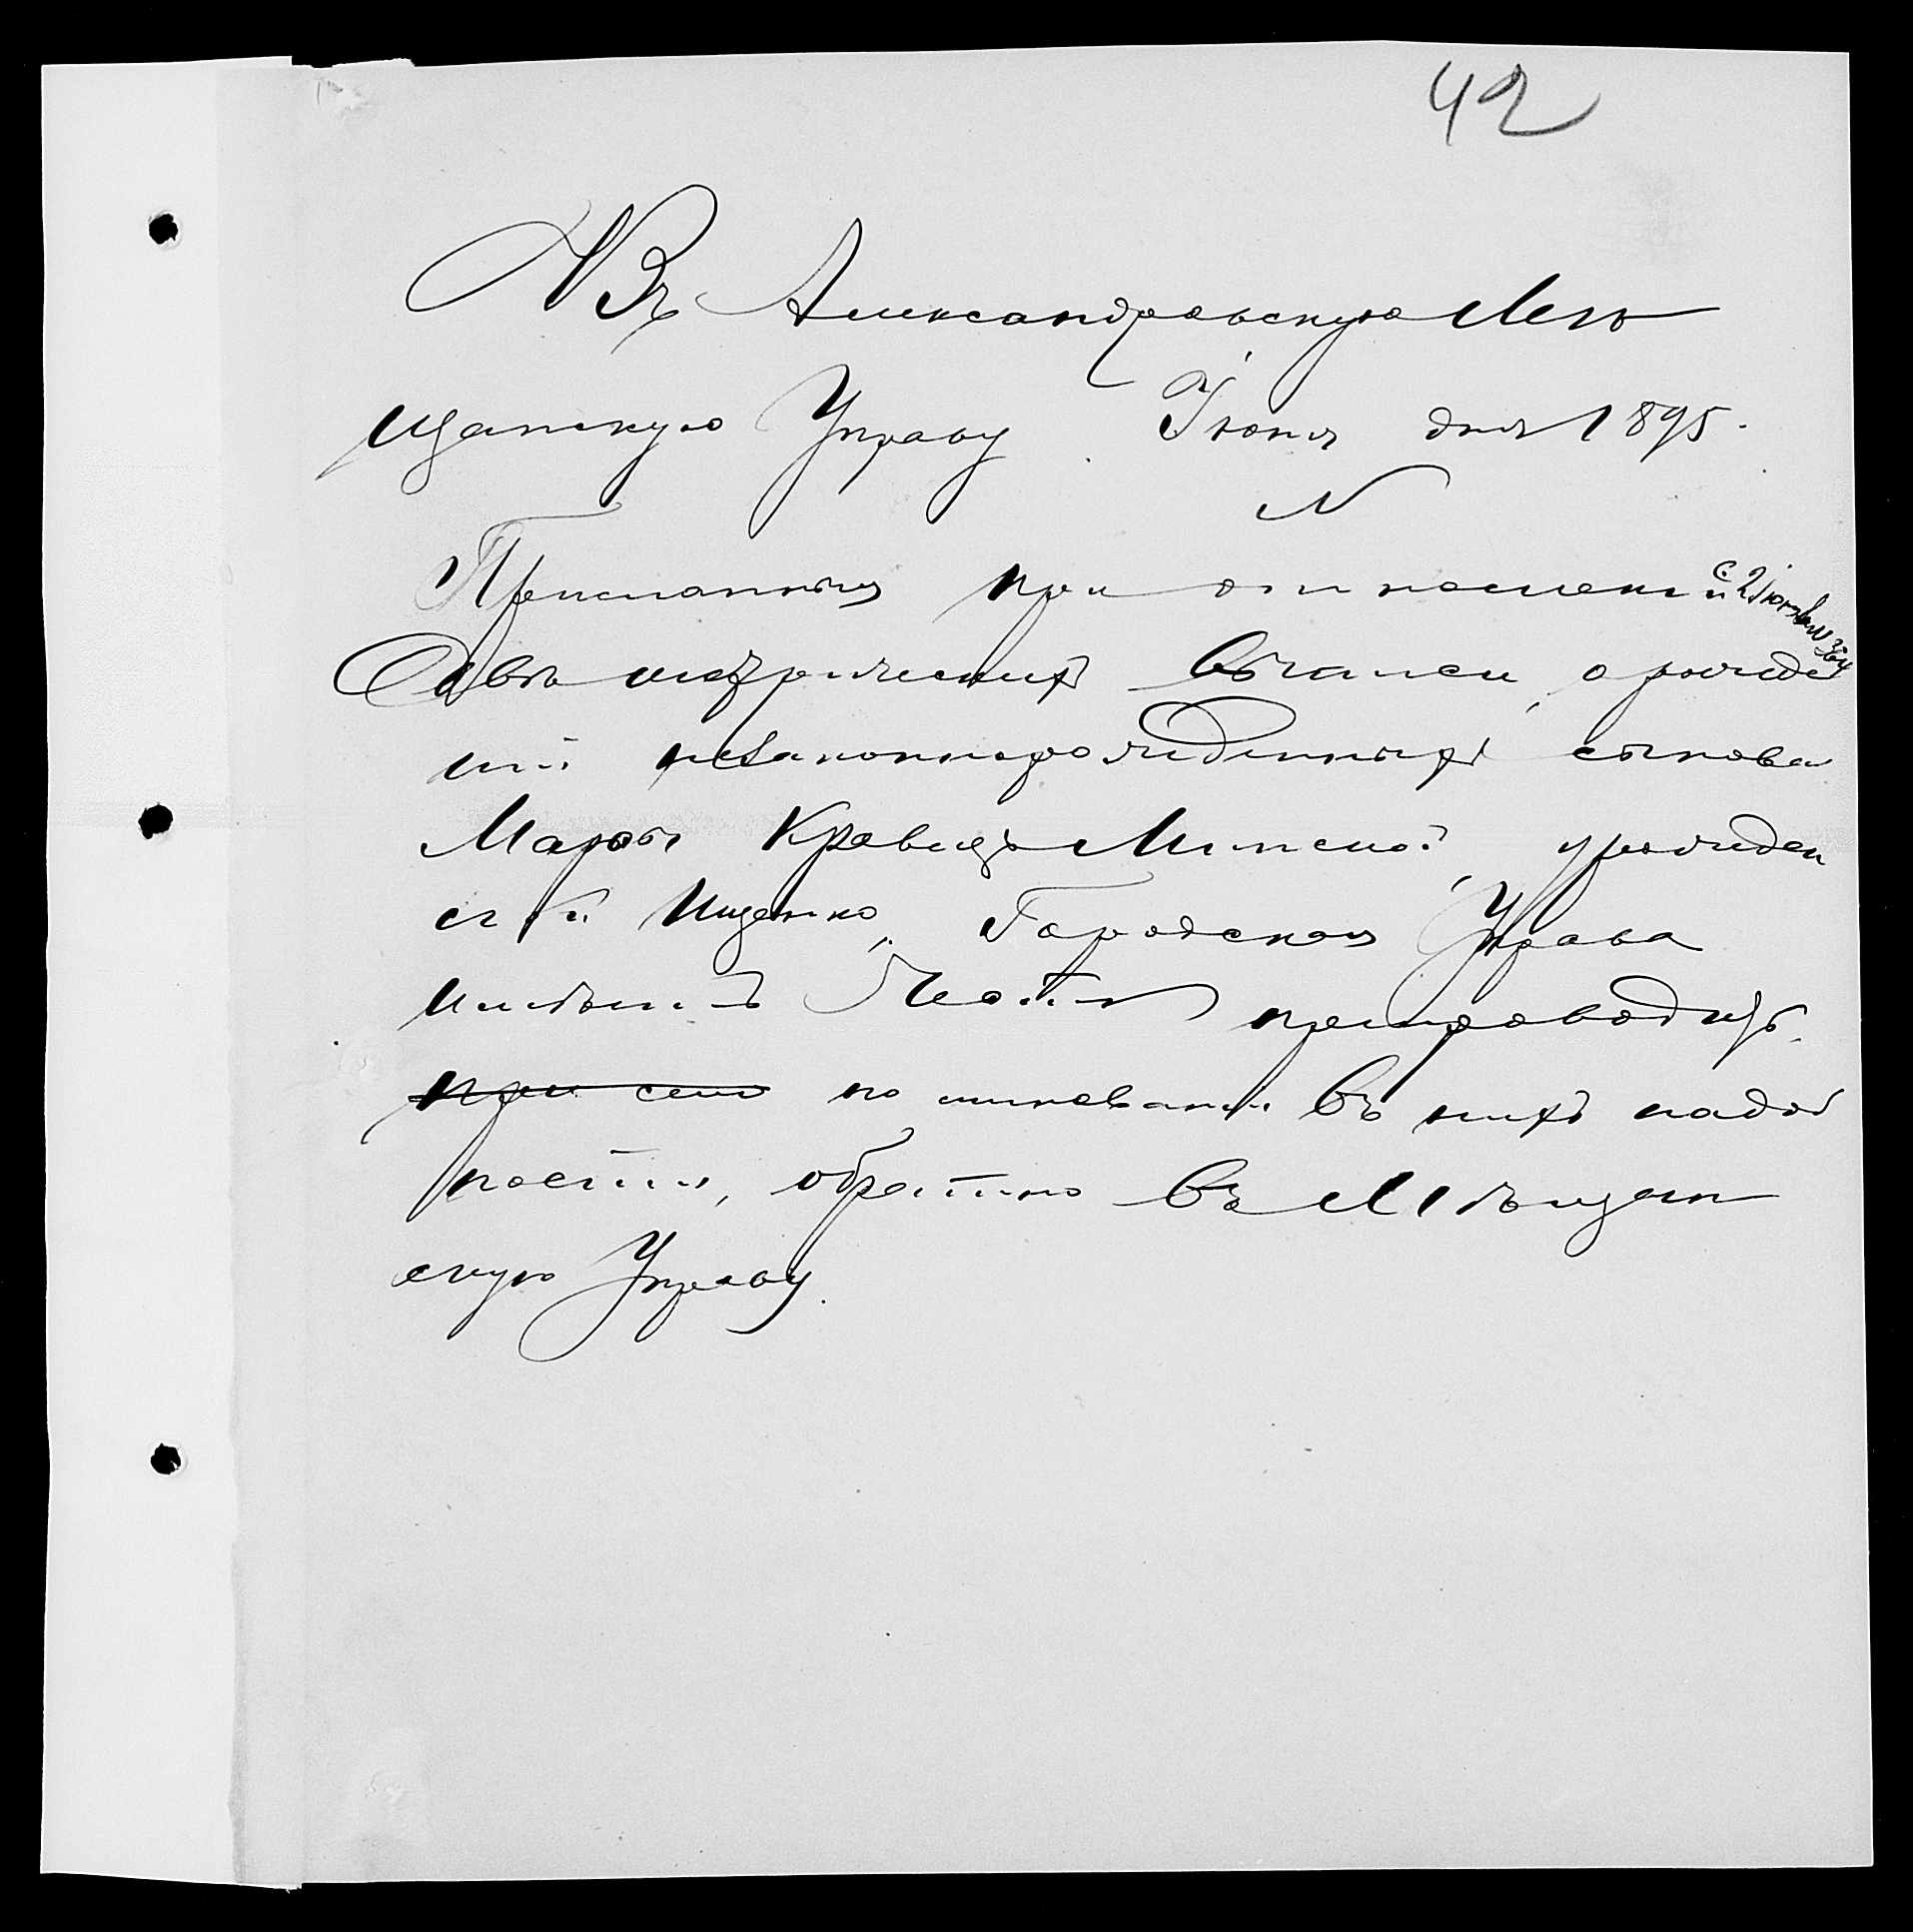 42
Въ Александровскую Мѣ
щанскую Управу Іюня дня 1895.
N
Присланныя при отношеніи с. 2 іюня N 364
двѣ метрическихъ выписи, о рожде
ніи незаконнорожденныхъ сынова
Марѳы Кравецъ, урожден
Ищенко, Городская Управа
имѣетъ честь препроводить
при семъ по минованіи въ нихъ надоб
ности, обратно въ Мѣщан
скую Управу.